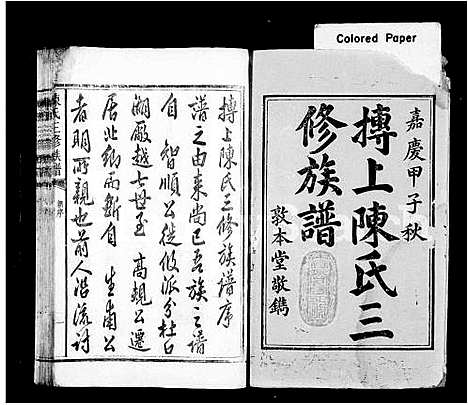 Colored Paper
嘉慶甲子秋
摶上陳氏三
修族譜
敦本堂敬鐫
摶上陳氏三修族譜序
譜之由來尚已吾族之譜
自 智順公徙攸派分杜
厥越七世至 高 公遷
居此鄉而斷自 生甫公
者明所親也前人沿流討
陳氏三修族譜